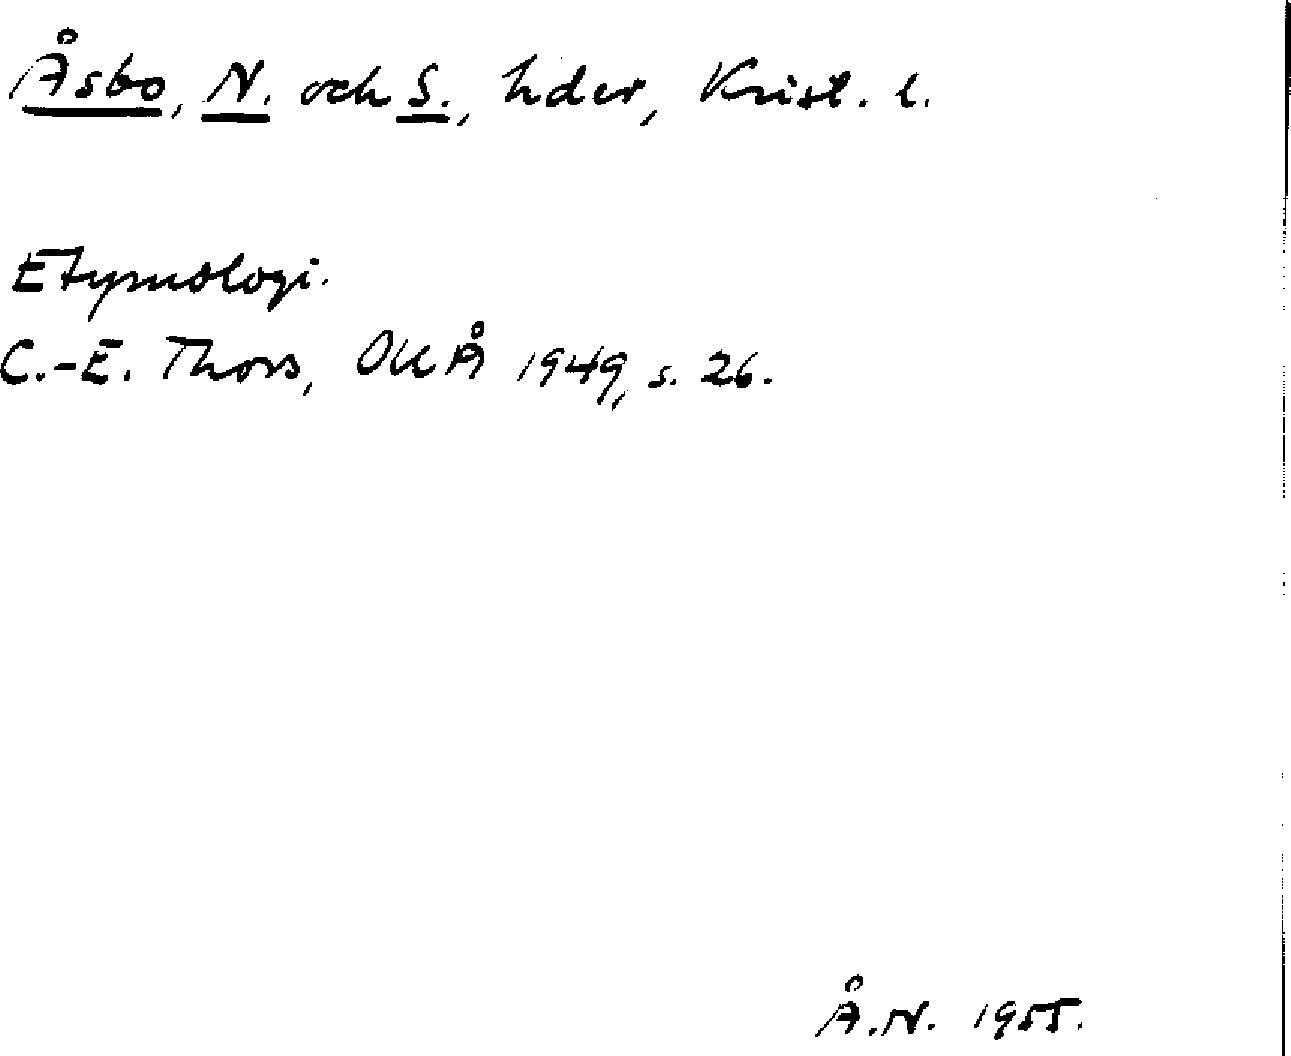 Åsbo, N. och S., hder, Krist. l.
Etymologi.
C.-E. Thors, OUÅ 1949, s. 26.
Å.N. 1955.